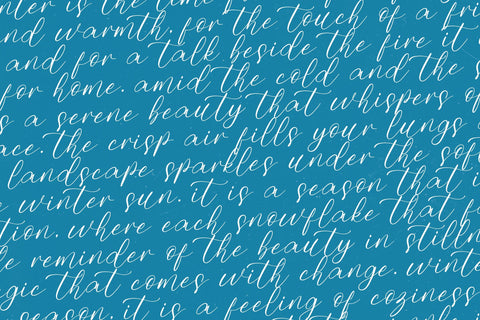 nter is the time
nd warmth, for the touch of a fri
and for a talk beside the fire it
for home. amid the cold and the s
s a serene beauty that whispers of
ace. the crisp air fills your lungs
landscape sparkles under the sof
e winter sun. it is a season that i
tion. where each snowflake that f
le reminder of the beauty in stilln
gic that comes with change. wint
season. it is a feeling of coziness